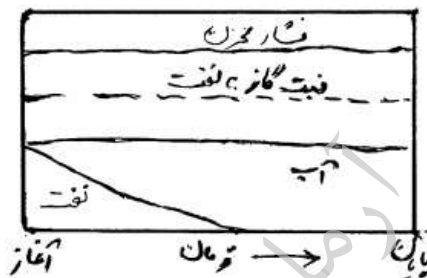 فشار مخزن
نسبت گاز به نفت
آب
نفت
آغاز
زمان
پایان